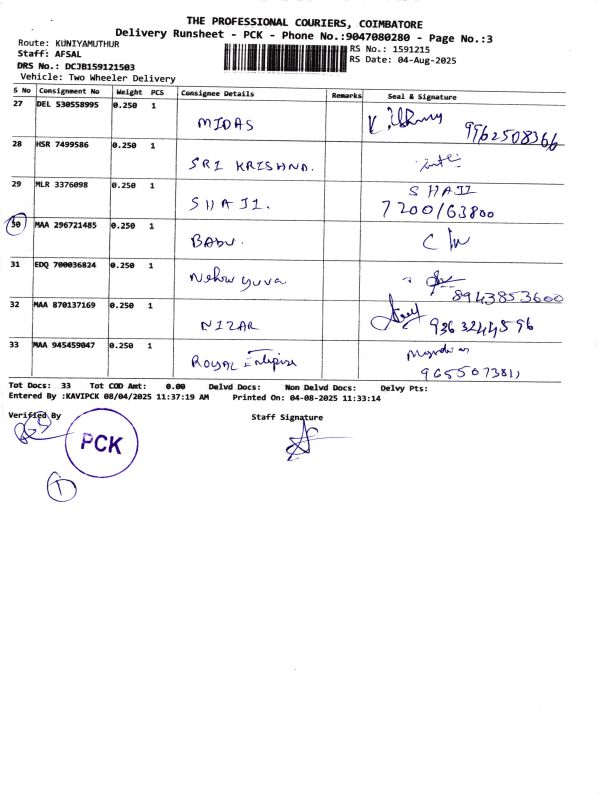 THE PROFESSIONAL COURIERS, COIMBATORE
Delivery Runsheet - PCK - Phone No.:9047080280 - Page No.:3
Route: KUNIYAMUTHUR
Staff: AFSAL
DRS No.: DCJB159121503
Vehicle: Two Wheeler Delivery
RS No.: 1591215
RS Date: 04-Aug-2025
S No Consignment No Weight PCS Consignee Details Remarks Seal & Signature
27 DEL 530558995 0.250 1 MIDAS 9962508366
28 HSR 7499586 0.250 1 SRI KRISHNA.
29 MLR 3376098 0.250 1 SHAJI. SHAJI
7200163800
30 MAA 296721485 0.250 1 BABU.
31 EDQ 700036824 0.250 1 Nehru yuva 8943853600
32 MAA 870137169 0.250 1 NIZAR 9363244596
33 MAA 945459047 0.250 1 ROYAL Enterprise
Tot Docs: 33 Tot COD Amt: 0.00 Delvd Docs: Non Delvd Docs: Delvy Pts:
Entered By :KAVIPCK 08/04/2025 11:37:19 AM Printed On: 04-08-2025 11:33:14
Verified By Staff Signature
PCK